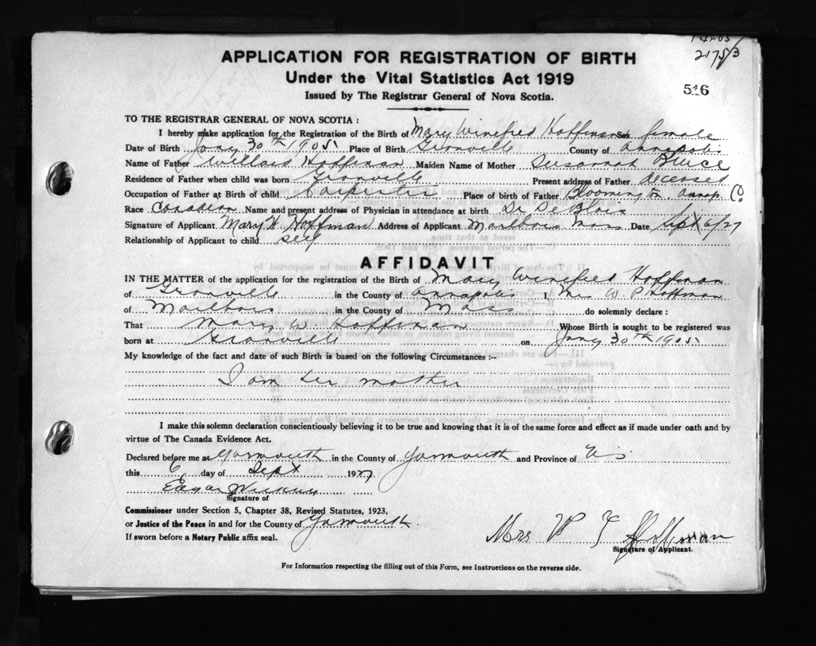 21753
APPLICATION FOR REGISTRATION OF BIRTH
Under the Vital Statistics Act 1919
Issued by The Registrar General of Nova Scotia.
516
TO THE REGISTRAR GENERAL OF NOVA SCOTIA :
I hereby make application for the Registration of the Birth of Mary Winefred Hoffman Sex female
Date of Birth Jany 30th 1905 Place of Birth Granville County of Annapolis
Name of Father Willard Hoffman Maiden Name of Mother Susannah Bruce
Residence of Father when child was born Granville Present address of Father deceased
Occupation of Father at Birth of child Carpenter Place of birth of Father Bloomington Annap. Co
Race Canadian Name and present address of Physician in attendance at birth Dr De Blois
Signature of Applicant Mary W. Hoffman Address of Applicant Marlboro Mass Date Sept 6/27
Relationship of Applicant to child self
AFFIDAVIT
IN THE MATTER of the application for the registration of the Birth of Mary Winefred Hoffman
of Granville in the County of Annapolis I, Mrs W P Hoffman
of Marlboro in the County of Mass do solemnly declare :
That Mary W. Hoffman Whose Birth is sought to be registered was
born at Granville on Jany 30th 1905
My knowledge of the fact and date of such Birth is based on the following Circumstances :-
I am her mother
I make this solemn declaration conscientiously believing it to be true and knowing that it is of the same force and effect as if made under oath and by
virtue of The Canada Evidence Act.
Declared before me at Yarmouth in the County of Yarmouth and Province of N.S
this 6 day of Sept 1927
Edgar
Signature of
Commissioner under Section 5, Chapter 38, Revised Statutes, 1923,
or Justice of the Peace in and for the County of Yarmouth.
If sworn before a Notary Public affix seal.
Mrs W P Hoffman
Signature of Applicant.
For Information respecting the filling out of this Form, see Instructions on the reverse side.